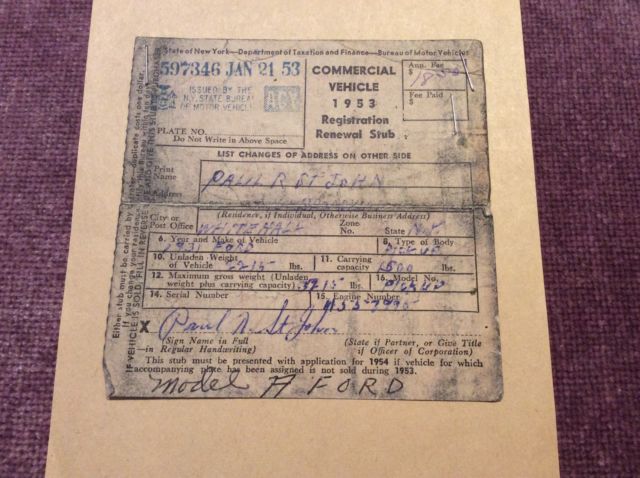 State of New York—Department of Taxation and Finance—Bureau of Motor Vehicles
597346 JAN 21 53
ISSUED BY THE
N.Y. STATE BUREAU
OF MOTOR VEHICLES
PLATE NO.
Do Not Write in Above Space
COMMERCIAL
VEHICLE
1953
Registration
Renewal Stub
Ann. Fee
$ 18.00
Fee Paid
$
LIST CHANGES OF ADDRESS ON OTHER SIDE
Print
Name PAUL R ST JOHN
Address
(Residence, if Individual, Otherwise Business Address)
City or
Post Office WHITEHALL Zone No. State N.Y.
6. Year and Make of Vehicle 8. Type of Body
1931 FORD PICK UP
10. Unladen Weight
of Vehicle 2215 lbs.
11. Carrying
capacity 1500 lbs.
12. Maximum gross weight (Unladen
weight plus carrying capacity) 3715 lbs.
16. Model No.
PICK UP
14. Serial Number 15. Engine Number
X Paul R. St John
(Sign Name in Full
—in Regular Handwriting)
(State if Partner, or Give Title
if Officer of Corporation)
This stub must be presented with application for 1954 if vehicle for which
accompanying plate has been assigned is not sold during 1953.
Model A FORD
Either stub must be carried by
IF VEHICLE IS SOLD, FILL IN REVERSE